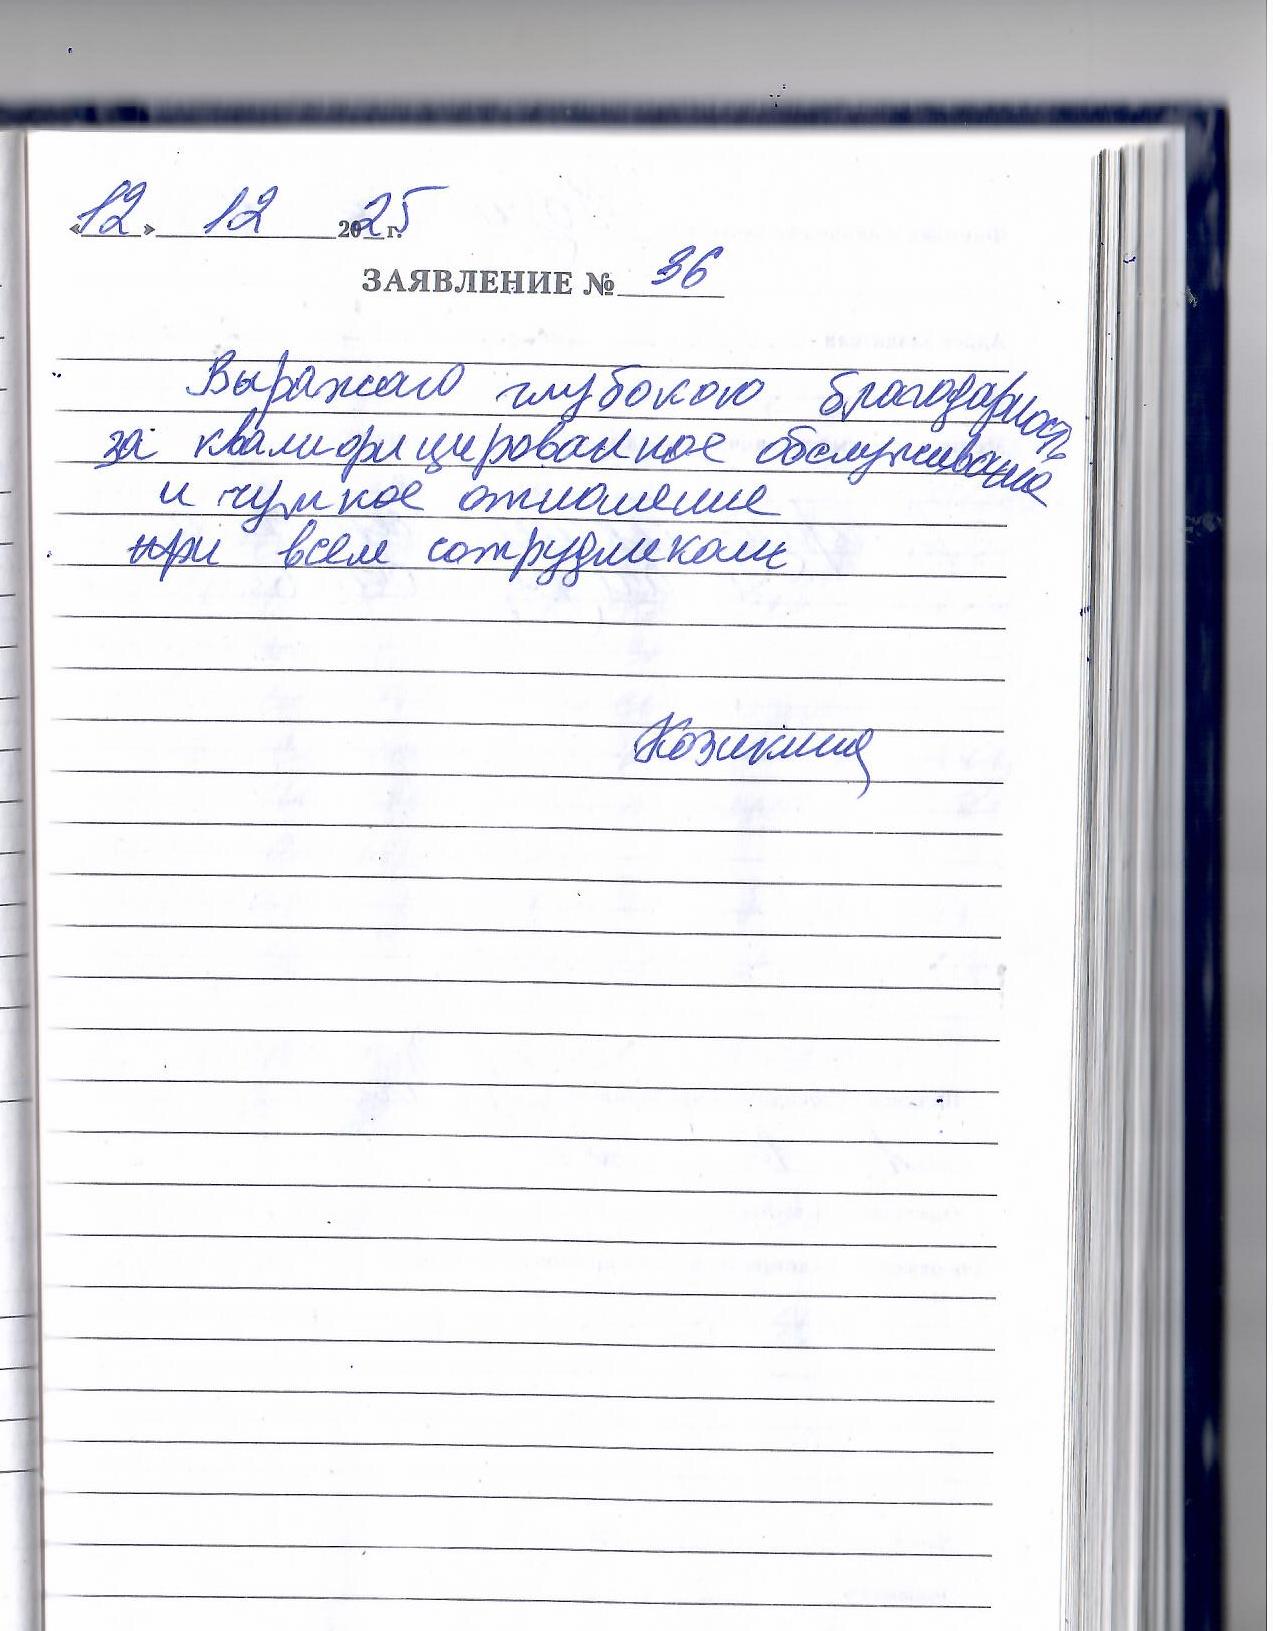 «12» 12 2025 г.
ЗАЯВЛЕНИЕ № 36
Выражаю глубокою благодарность
за квалифицированное обслуживание
и чуткое отношение
при всем сотрудникам
Козикина